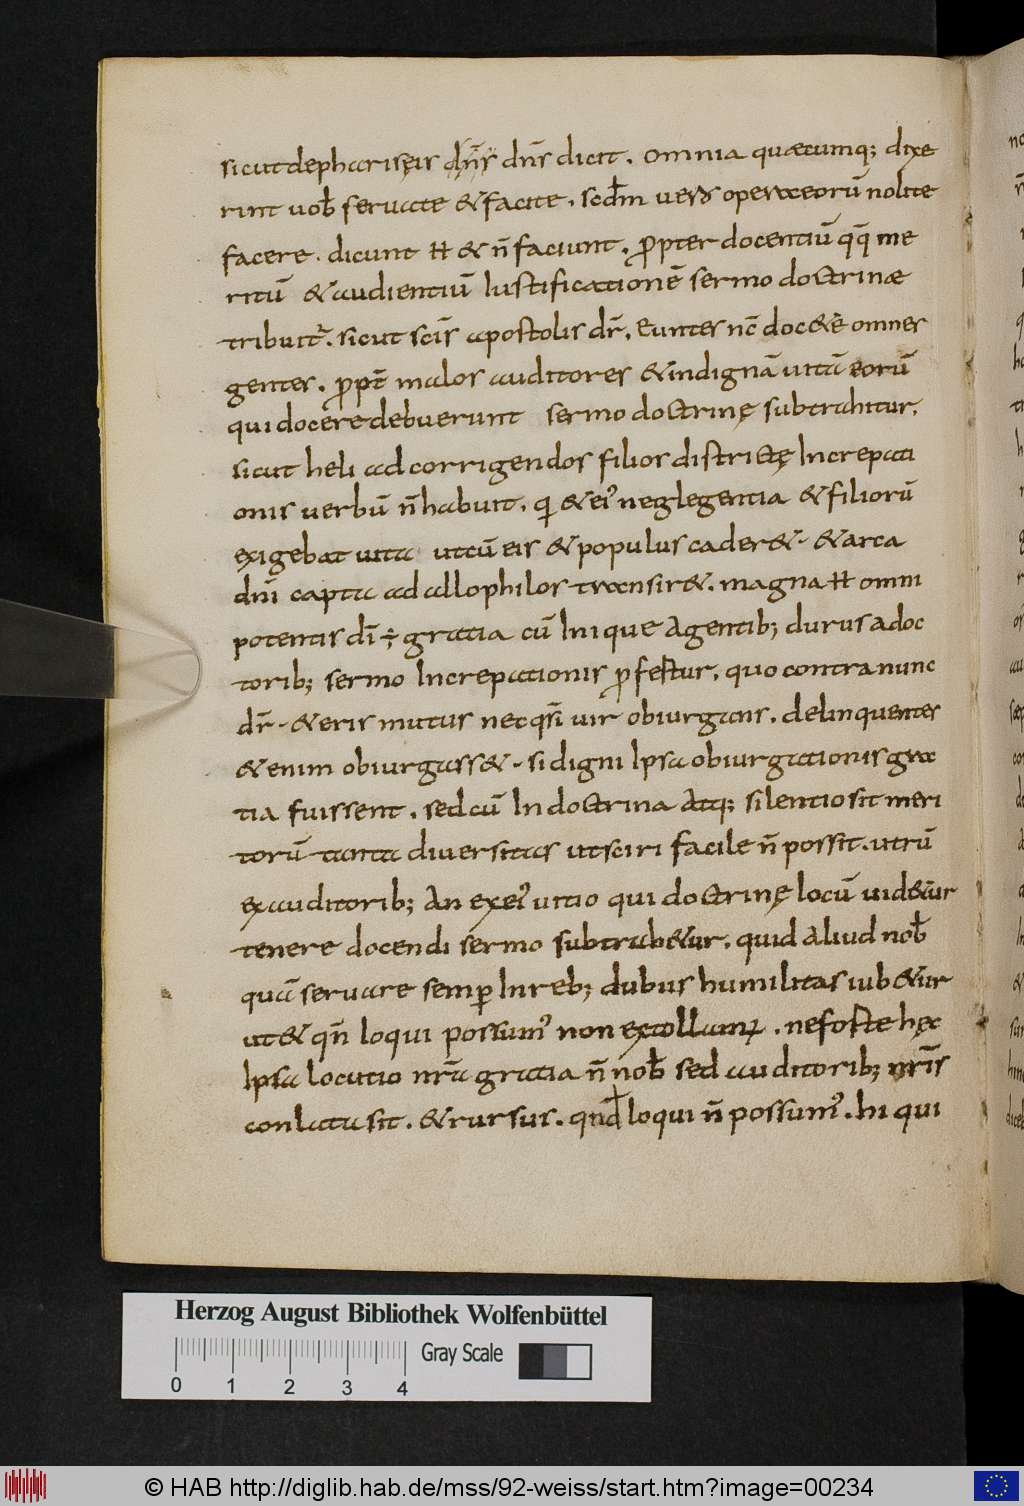 sicut de phariseis dn̄s dn̄s dicit. Omnia quæcumq; dixe
rint uob̄ seruate & facite. scd̄m uero opera eorū nolite
facere. dicunt H & n̄ faciunt. ꝓpter docentiū qq̄ me
ritū & audientiū Iustificationē sermo doctrinæ
tribuit᷑. sicut sc̄is apostolis dr̄. Euntes nc̄ doc&ē omnes
gentes. ꝓpt̄ malos auditores & indignā uitā eorū
qui docere debuerunt sermo doctrinę subtrahitur.
sicut heli ad corrigendos filios districtę Increpati
onis uerbū n̄ habuit. qi & ei' neglegentia & filiorū
exigebat uita ut cū eis & populus cader&. & arca
dn̄i capta ad allophilos transir&. magna H omni
potentis dī ÷ gratia cū Inique agentib; durus a doc
torib; sermo Increpationis ꝓfertur. quo contra nunc
dr̄. & eris mutus nec qs̄i uir obiurgans. delinquentes
& enim obiurgass&. si digni Ipsa obiurgationis gra
tia fuissent. sed cū In doctrina atq; silentio sit meri
torū tanta diuersitas ut sciri facile n̄ possit. utrū
ex auditorib; An ex ei' uitio qui doctrinę locū uid&ur
tenere docendi sermo subtrah&ur. quid aliud nob̄
quā seruare semꝑ In reb; dubiis humilitas iub&ur
ut & qn̄ loqui possum' non extollam᷑. ne forte hęc
Ipsa locutio nr̄a gratia n̄ nob̄ sed auditorib; nr̄is
conlata sit. & rursus. qnđ loqui n̄ possum'. hi qui
Herzog August Bibliothek Wolfenbüttel
Gray Scale
0 1 2 3 4
© HAB http://diglib.hab.de/mss/92-weiss/start.htm?image=00234